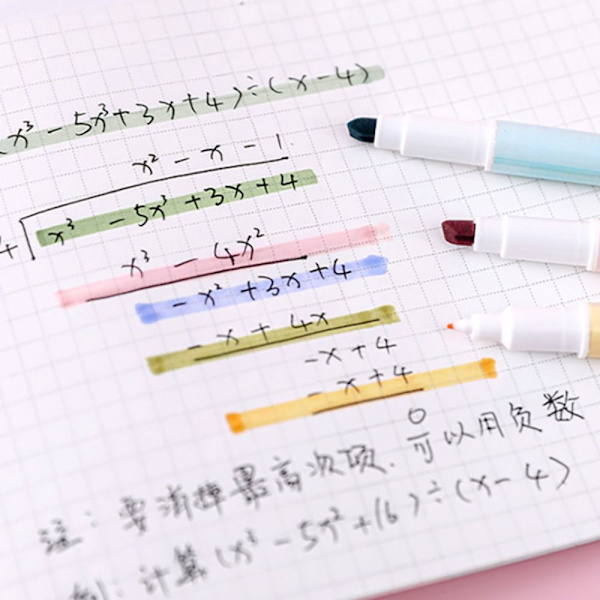 (x³ - 5x³ + 3x + 4) ÷ (x - 4)
x² - x - 1
4 x³ - 5x³ + 3x + 4
x³ - 4x²
- x² + 3x + 4
- x + 4x
- x + 4
- x + 4
0
注：要消掉最高次项. 可以用负数
例：计算(x³ - 5x² + 16) ÷ (x - 4)